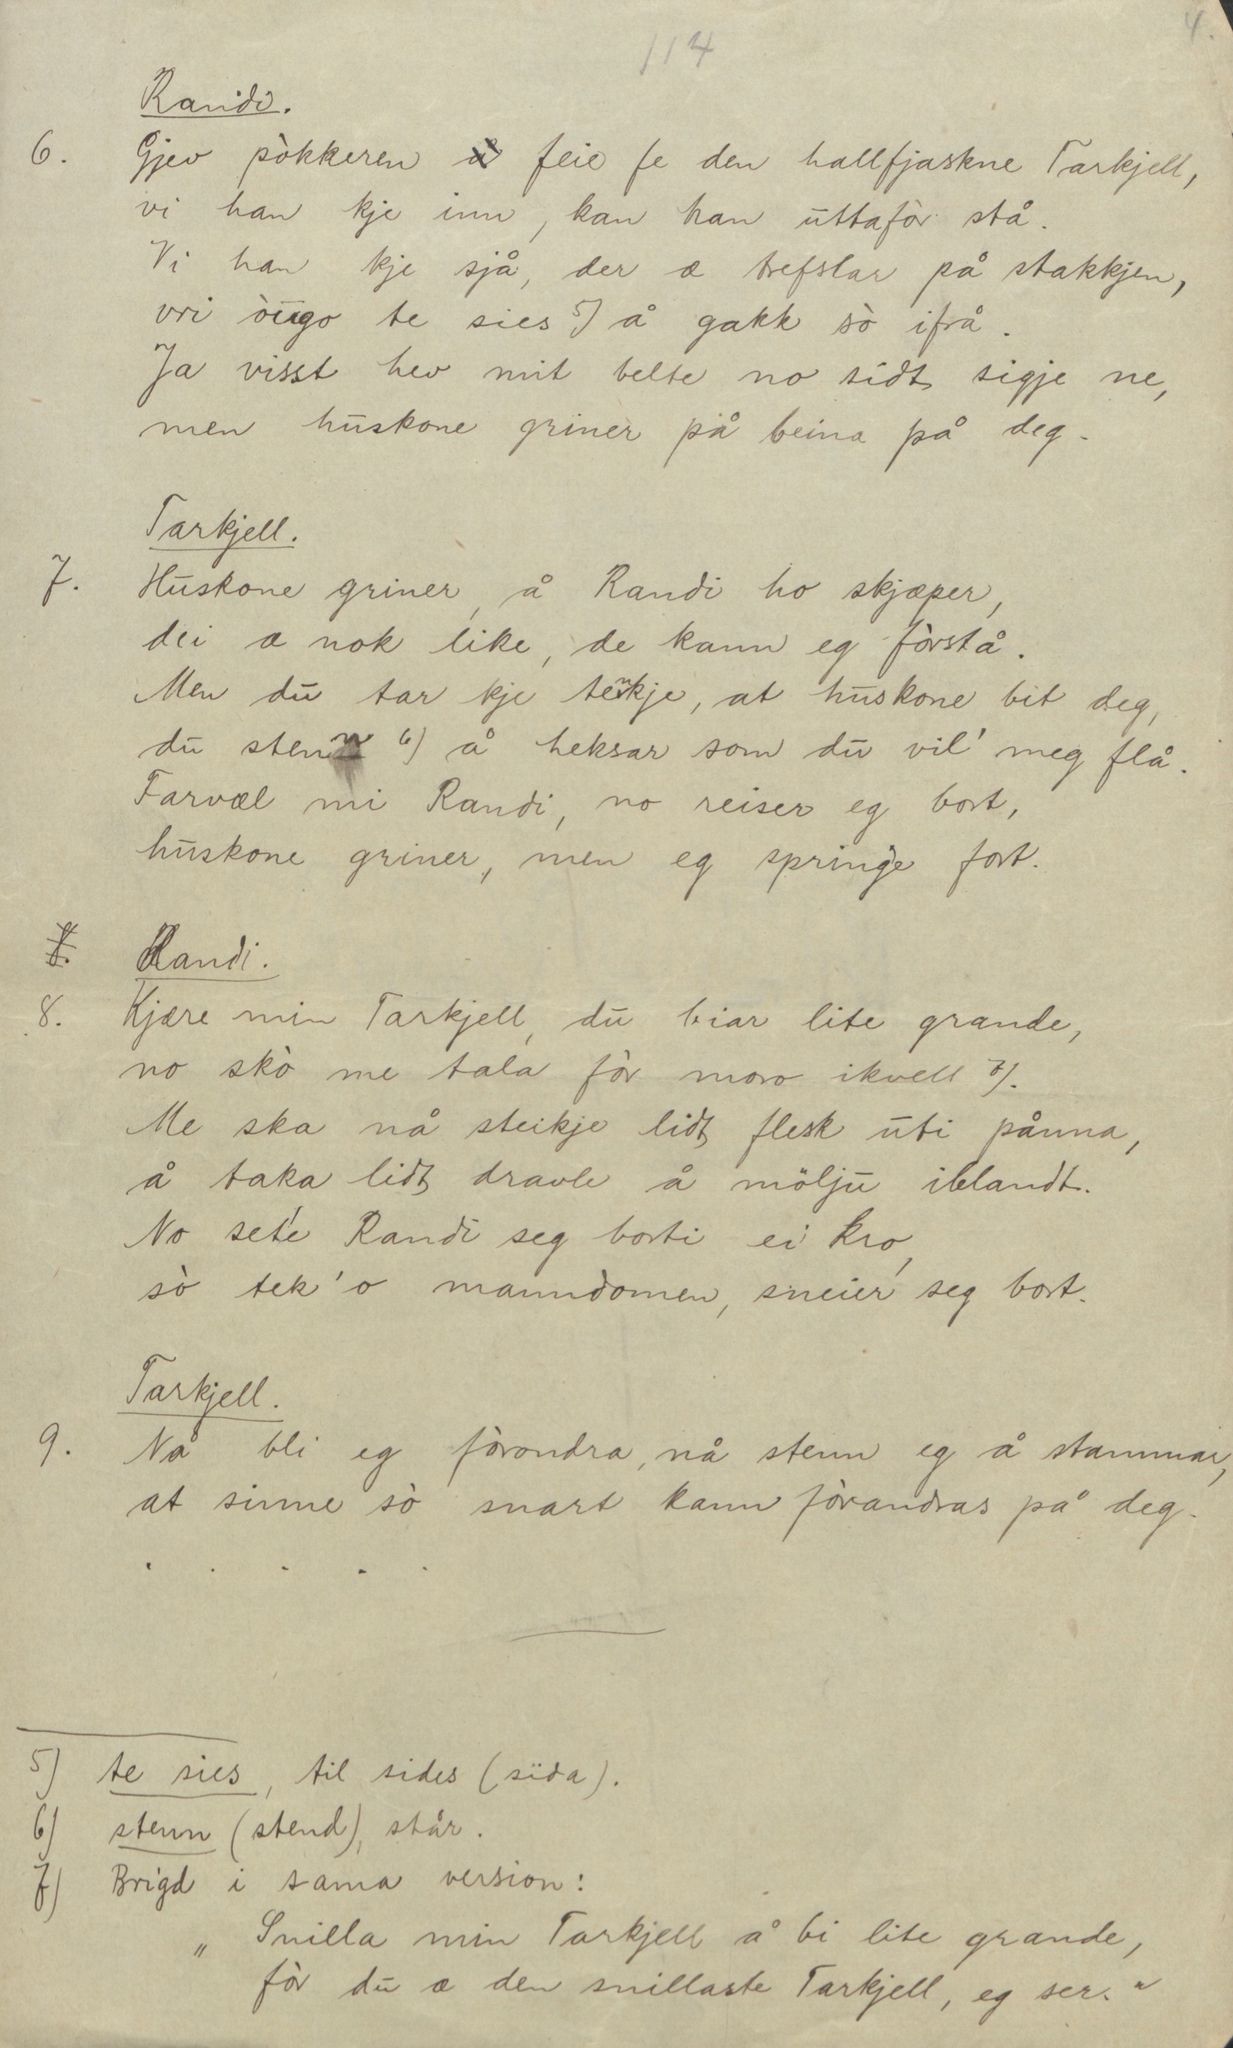 114
4.
Randi.
6. Gjev pòkkeren å feie fe den hallfjaskne Tarkjell,
vi han kje inn, kan han uttafòr stå.
Vi han kje sjå, der æ trefslar på stakkjen,
vri òugo te sies 5) å gakk sò ifrå.
Ja visst hev mit belte no sidt sigje ne,
men huskone griner på beina på deg.
Tarkjell.
7. Huskone griner, å Randi ho skjæper,
dei æ nok like, de kann eg fòrstå.
Men du tar kje tenkje, at huskone bit deg,
du stenn 6) å heksar som du vil' meg flå.
Farvæl mi Randi, no reiser eg bort,
huskone griner, men eg springe fort.
8. Randi.
8. Kjære min Tarkjell, du biar lite grande,
no skò me tala fòr moro ikvell 7).
Me ska nå steikje lidt flesk uti pånna,
å taka lidt dravle å mölju iblandt.
No set'e Randi seg borti ei kro,
sò tek'o manndomen, sneier seg bort.
Tarkjell.
9. Nå bli eg fòrondra, nå stenn eg å stammar,
at sinne sò snart kann fòrandras på deg.
. . . . .
5) te sies, til sides (sida).
6) stenn (stend), står.
7) Brigd i sama version:
„Snilla min Tarkjell å bi lite grande,
fòr du æ den snillaste Tarkjell, eg ser."